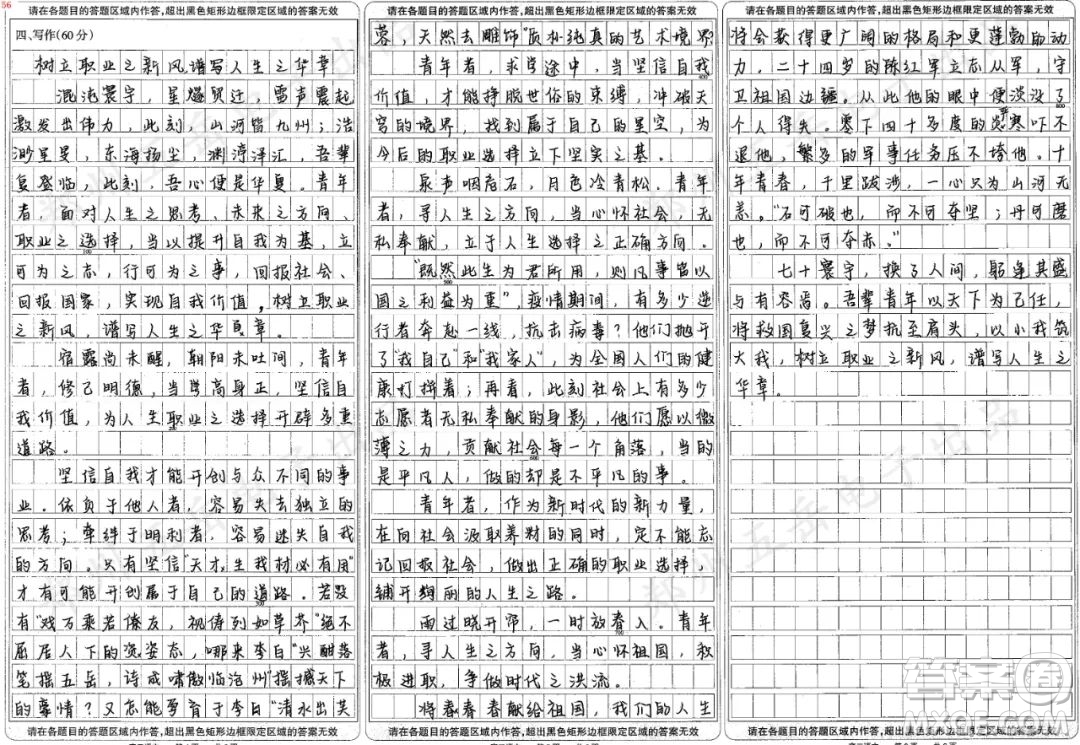 56
请在各题目的答题区域内作答,超出黑色矩形边框限定区域的答案无效
四、写作(60分)
树立职业之新风,谱写人生之华章
混沌寰宇，星燧贸迁，雷声震起
激发出伟力，此刻，山河皆九州；浩
渺星旻，东海扬尘，渊渟泽汇，吾辈
复盛临，此刻，吾心便是华夏。青年
者，面对人生之思考、未来之方向、
职业之选择，当以提升自我为基，立
可为之志，行可为之事，回报社会、
回报国家，实现自我价值。树立职业
之新风，谱写人生之华章。
宿露尚未醒，朝阳未吐间，青年
者，修己明德，当学高身正，坚信自
我价值，为人生职业之选择开辟多重
道路。
坚信自我才能开创与众不同的事
业。依负于他人者，容易失去独立的
思考；牵绊于明利者，容易迷失自我
的方向。只有坚信"天才生我材必有用"
才有可能开创属于自己的道路。若没
有"戏万乘若僚友，视俦列如草芥"绝不
屈居人下的姿态，哪来李白"兴酣落
笔摇五岳，诗成啸傲临沧州"摇撼天下
的豪情？又怎能孕育于李白"清水出芙
请在各题目的答题区域内作答,超出黑色矩形边框限定区域的答案无效
请在各题目的答题区域内作答,超出黑色矩形边框限定区域的答案无效
蓉，天然去雕饰"质朴纯真的艺术境界
青年者，求学途中，当坚信自我
价值，才能挣脱世俗的束缚，冲破天
宫的境界，找到属于自己的星空，为
今后的职业选择立下坚实之基。
泉声咽危石，月色冷青松。青年
者，寻人生之方向，当心怀社会，无
私奉献，立于人生选择之正确方向。
"既然此生为君所用，则凡事皆以
国之利益为重"，疫情期间，有多少逆
行者奔赴一线，抗击病毒？他们抛开
了"我自己"和"我家人"，为全国人们的健
康打拼着；再看，此刻社会上有多少
志愿者无私奉献的身影，他们愿以微
薄之力，贡献社会每一个角落，当的
是平凡人，做的却是不平凡的事。
青年者，作为新时代的新力量，
在向社会汲取养料的同时，定不能忘
记回报社会，做出正确的职业选择，
铺开绚丽的人生之路。
雨过晓开帘，一时放春入。青年
者，寻人生之方向，当心怀祖国，积
极进取，争做时代之洪流。
将青春奉献给祖国，我们的人生
请在各题目的答题区域内作答,超出黑色矩形边框限定区域的答案无效
请在各题目的答题区域内作答,超出黑色矩形边框限定区域的答案无效
将会获得更广阔的格局和更蓬勃的动
力，二十四岁的陈红军立志从军，守
卫祖国边疆。从此他的眼中便淡没了
个人得失。零下四十多度的严寒吓不
退他，繁多的军事任务压不垮他。十
年青春，千里跋涉，一心只为山河无
恙。"石可破也，而不可夺坚；丹可磨
也，而不可夺赤。"
七十寰宇，换了人间，躬逢其盛
与有荣焉。吾辈青年以天下为己任，
将救国复兴之梦抗至肩头，以小我筑
大我，树立职业之新风，谱写人生之
华章。
请在各题目的答题区域内作答,超出黑色矩形边框限定区域的答案无效
答案圈
MXQE.COM